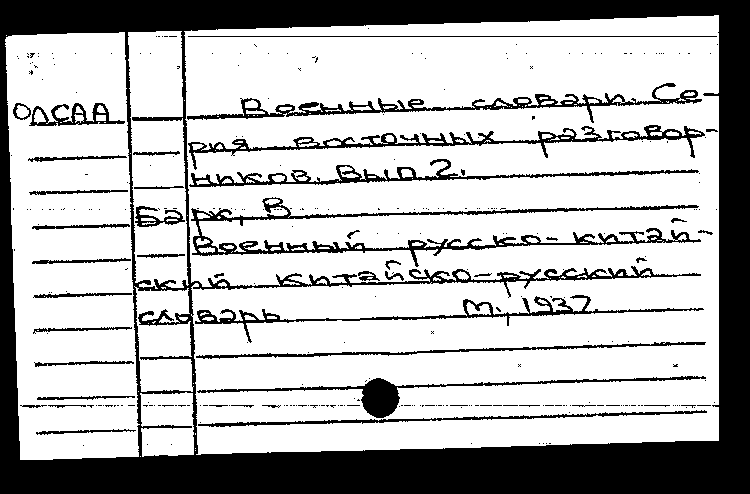 ОЛСАА Военные словари. Се-
рия восточных разговор-
ников. Вып 2.
Барк, В
Военный русско-китай-
ский китайско-русский
словарь М., 1937.